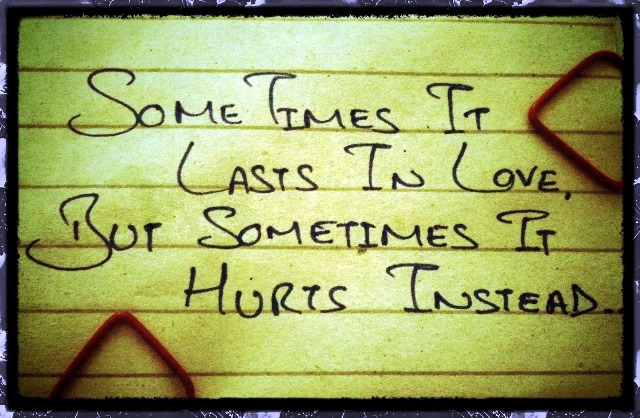 SOMETIMES IT
LASTS IN LOVE,
BUT SOMETIMES IT
HURTS INSTEAD..